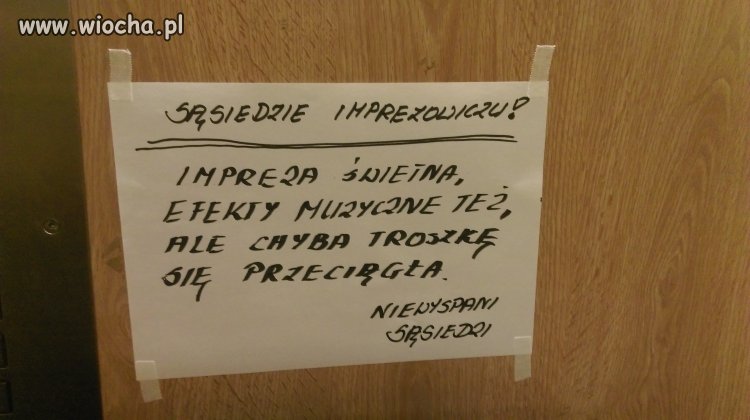 www.wiocha.pl
SĄSIEDZIE IMPREZOWICZU!
IMPREZA ŚWIETNA,
EFEKTY MUZYCZNE TEŻ,
ALE CHYBA TROSZKĘ
SIĘ PRZECIĄGŁA.
NIEWYSPANI
SĄSIEDZI